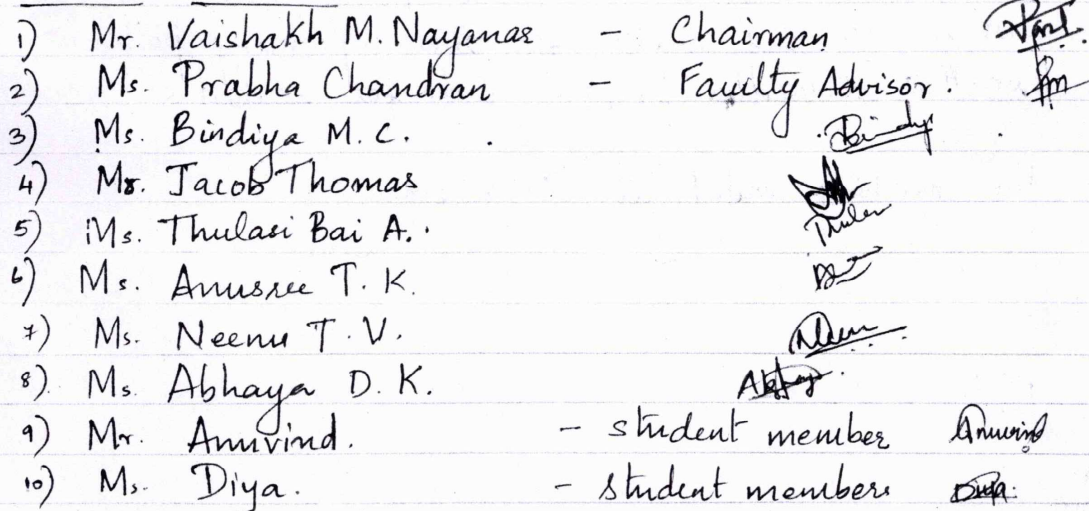 1) Mr. Vaishakh M. Nayanar - Chairman
2) Ms. Prabha Chandran - Faculty Advisor.
3) Ms. Bindiya M. C. Bindiya
4) Mr. Jacob Thomas
5) Ms. Thulasi Bai A.
6) Ms. Anusree T. K.
7) Ms. Neenu T. V.
8) Ms. Abhaya D. K. Abhaya
9) Mr. Anuvind. - student member Anuvind
10) Ms. Diya. - student members Diya